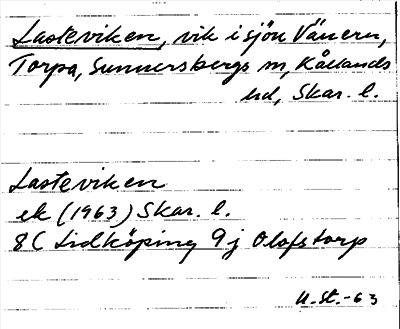 Lasteviken, vik i sjön Vänern,
Torpa, Sunnersbergs sn, Kållands
hd, Skar. l.
Lasteviken
ek (1963) Skar. l.
8C Lidköping 9j Olofstorp
U.st.-63